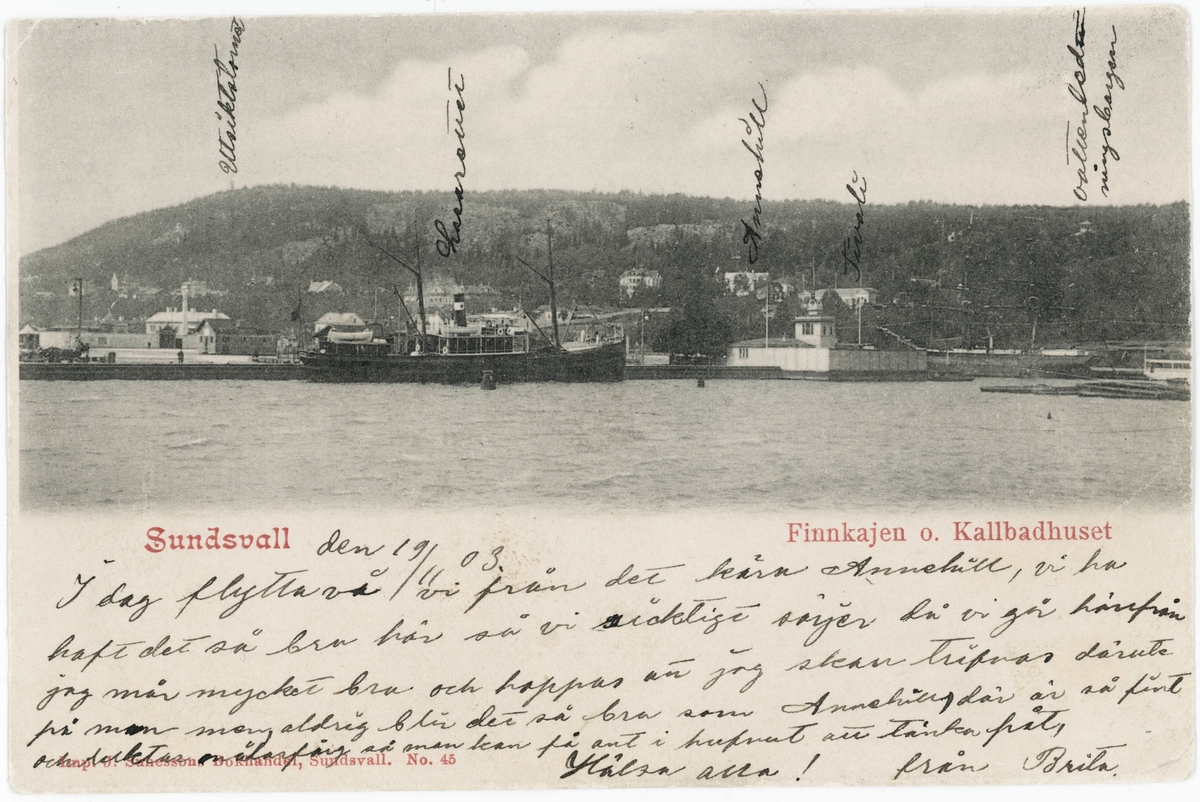 Utsiktstornet
Annehill
Tivoli
vattenledn
ningsbergen
Sundsvall
Finnkajen o. Kallbadhuset
den 19/11 03.
I dag flytta vi från det kära Annehill, vi ha
haft det så bra här så vi sörjer då vi går härifrån
jag mår mycket bra och hoppas att jag skall trifvas därute
på men, aldrig blir det så bra som Annehill, där är så fint
och så man kan få ont i hufvut att tänka på't,
Imp. J. Bokhandel, Sundsvall. No. 45
Hälsa alla! från Brita.